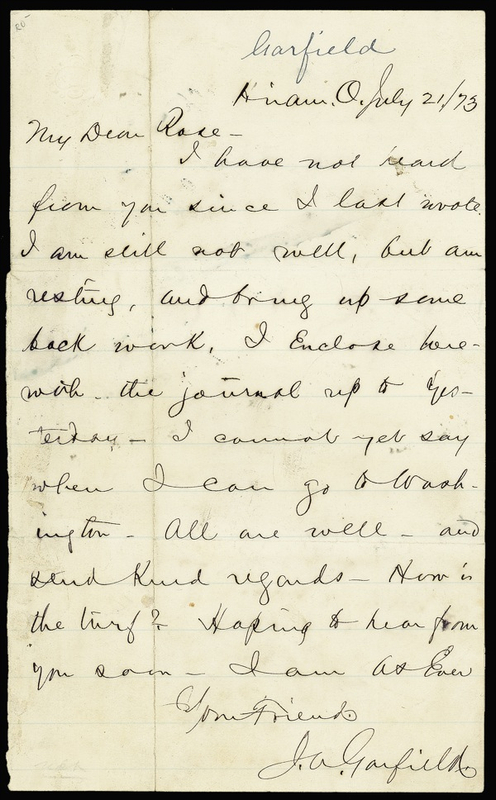 Garfield
Hiram. O. July 21/73
My Dear Rose -
I have not heard
from you since I last wrote.
I am still not well, but am
resting, and bring up some
back work. I Enclose here-
with the journal up to Yes-
terday - I cannot yet say
when I can go to Wash-
ington - All are well - and
send Kind regards - How is
the turf? Hoping to hear from
you soon - I am As Ever
Your Friend
J. A. Garfield.